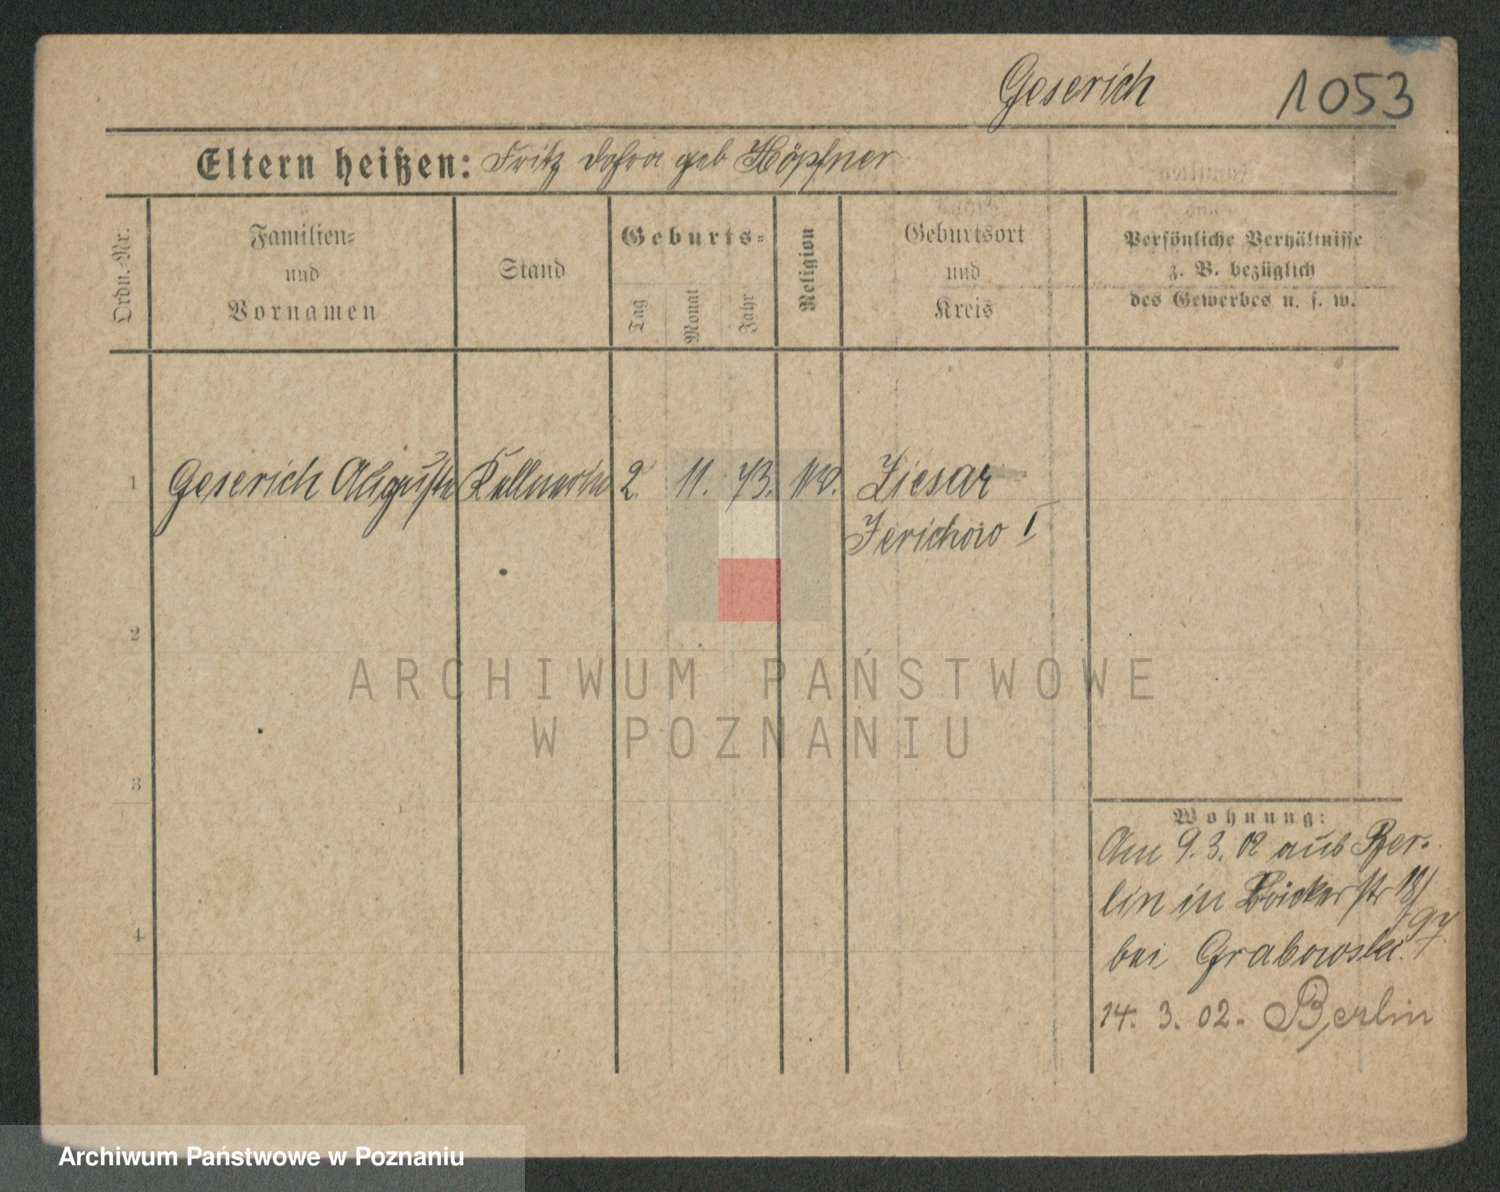 Geserich 1053
Eltern heißen: Fritz Dora geb Höpfner
Ordn.-Nr.
Familien=
und
Vornamen
Stand
Geburts=
Tag
Monat
Jahr
Religion
Geburtsort
und
Kreis
Persönliche Verhältnisse
z. B. bezüglich
des Gewerbes u. s. w.
1 Geserich Auguste Kellnerin 2. 11. 73. Ziesar
Jerichow I
2
ARCHIWUM PAŃSTWOWE
W POZNANIU
3
Wohnung:
Am 9. 3. 02 aus Ber-
lin in str 18/
97
bei Grabowski.
4
14. 3. 02. Berlin
Archiwum Państwowe w Poznaniu